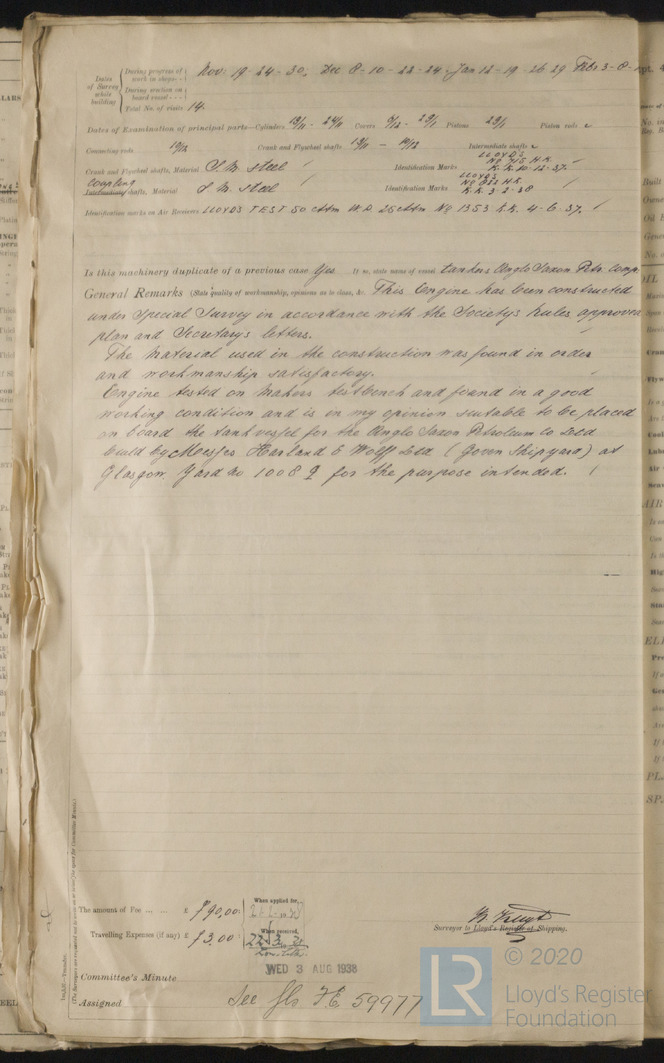 Dates of Survey while building
During progress of work in shops - -
Nov: 19-24-30, Dec 8-10-22-24, Jan 12-19-26-29 Feb 3-8-
During erection on board vessel - - -
Total No. of visits 14.
Dates of Examination of principal parts—Cylinders 19/11 - 24/11 Covers 9/12 - 29/1 Pistons 29/1 Piston rods
Connecting rods 10/12 Crank and Flywheel shafts 19/11 - 10/12 Intermediate shafts
Crank and Flywheel shafts, Material S.M. steel Identification Marks LLOYD'S No 715 H.K. K.K. 10-12-37.
Coupling Intermediate shafts, Material S.M. steel Identification Marks LLOYD'S No 822 H.K. K.K. 3-2-38
Identification marks on Air Receivers LLOYDS TEST 50 Atm W.P. 25 Atm No 1353 K.K. 4-6-37.
Is this machinery duplicate of a previous case Yes If so, state name of vessel tankers Anglo Saxon Petr. Comp.
General Remarks (State quality of workmanship, opinions as to class, &c. This Engine has been constructed
under Special Survey in accordance with the Society's Rules approved
plan and Secretary's letters.
The material used in the construction was found in order
and workmanship satisfactory.
Engine tested on Makers testbench and found in a good
working condition and is in my opinion suitable to be placed
on board the tank vessel for the Anglo Saxon Petroleum Co Ltd
build by Messrs Harland & Wolff Ltd (Govan Shipyard) at
Glasgow Yard No 1008 G for the purpose intended.
The amount of Fee ... ... £ 90.00: When applied for,
Travelling Expenses (if any) £ 3.00: When received,
Surveyor to Lloyd's Register of Shipping.
WED 3 AUG 1938
Committee's Minute
Assigned See Gls F.E. 59977
© 2020
LR
Lloyd's Register
Foundation